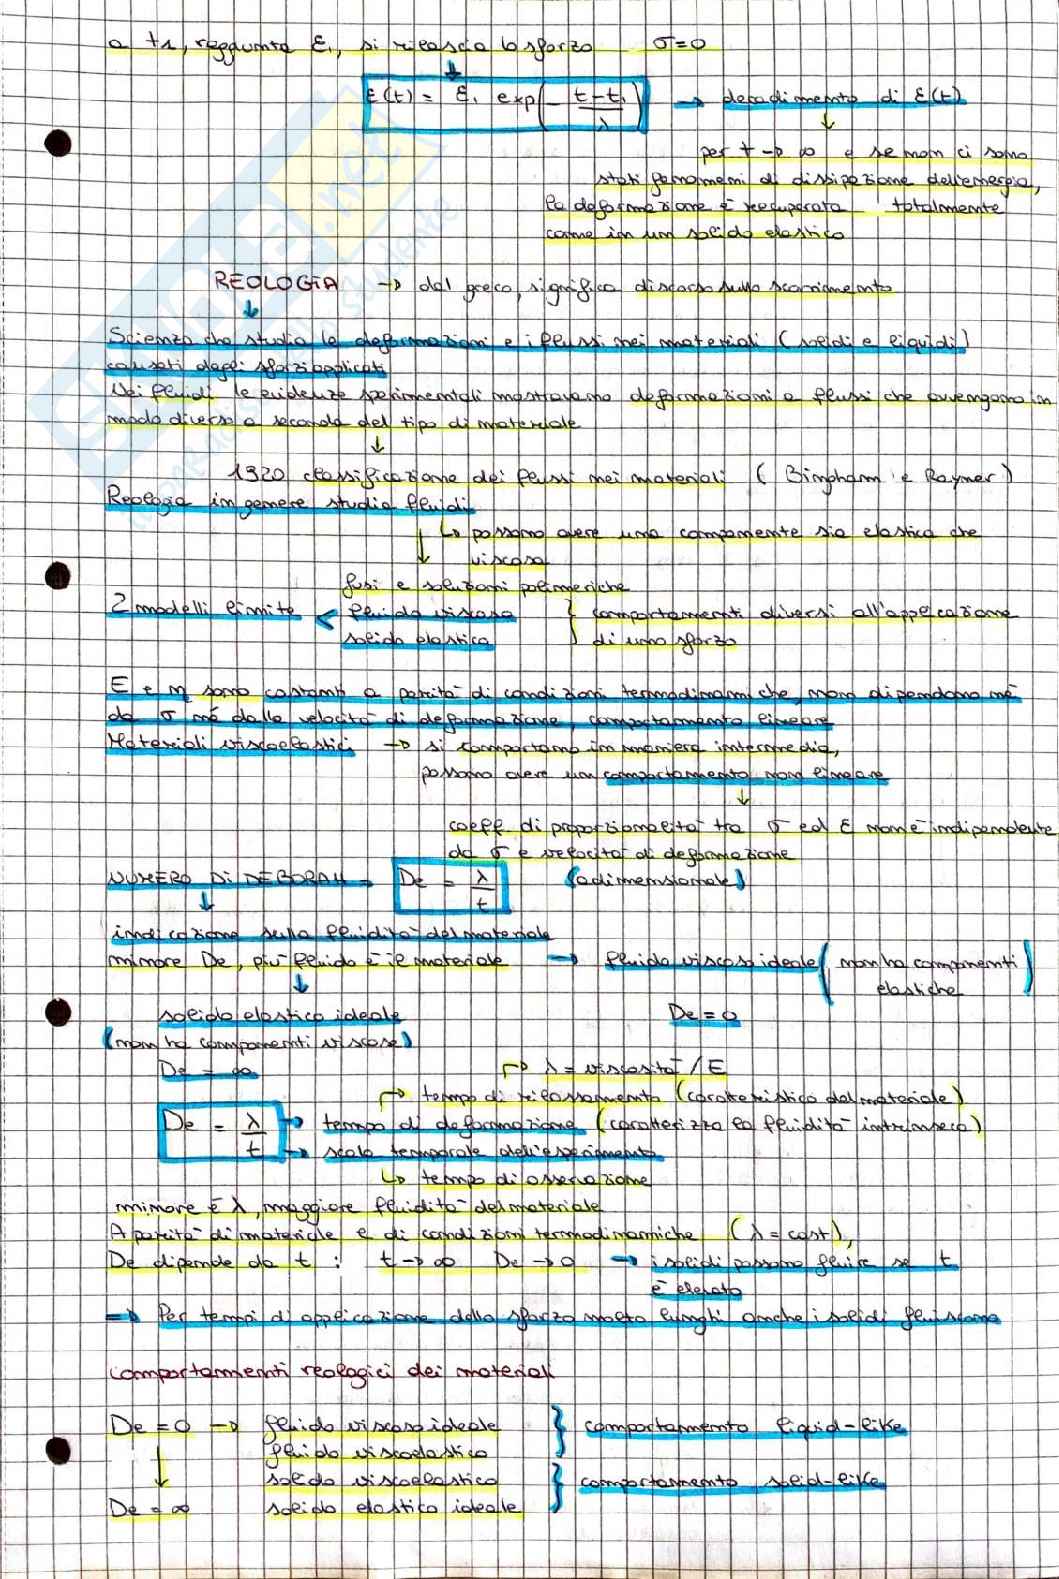 a t1, raggiunta ε1, si rilascia lo sforzo σ=0
ε(t) = ε1 exp(- t-t1 / λ) → decadimento di ε(t)
per t → ∞ e se non ci sono
stati fenomeni di dissipazione dell'energia,
la deformazione è recuperata totalmente
come in un solido elastico
REOLOGIA → dal greco, significa discorso sullo scorrimento
Scienza che studia le deformazioni e i flussi nei materiali (solidi e liquidi)
causati dagli sforzi applicati
Nei fluidi le evidenze sperimentali mostravano deformazioni e flussi che avvengono in
modo diverso a seconda del tipo di materiale
1920 classificazione dei flussi nei materiali (Bingham e Rayner)
Reologia in genere studia fluidi
↳ possono avere una componente sia elastica che
viscosa
fusi e soluzioni polimeriche
2 modelli limite < fluido viscoso } comportamenti diversi all'applicazione
solido elastico di uno sforzo
E e η sono costanti a parità di condizioni termodinamiche, non dipendono né
da σ né dalla velocità di deformazione, comportamento lineare
Materiali viscoelastici → si comportano in maniera intermedia,
possono avere un comportamento non lineare
coeff. di proporzionalità tra σ ed ε non è indipendente
da σ e velocità di deformazione
NUMERO DI DEBORAH → De = λ / t (adimensionale)
indicazione sulla fluidità del materiale
minore De, più fluido è il materiale → fluido viscoso ideale (non ha componenti
elastiche)
solido elastico ideale De = 0
(non ha componenti viscose)
De = ∞ ↱ λ = viscosità / E
↱ tempo di rilassamento (caratteristico del materiale)
De = λ / t → tempo di deformazione (caratterizza la fluidità intrinseca)
→ scala temporale dell'esperimento
↳ tempo di osservazione
minore è λ, maggiore fluidità del materiale
A parità di materiale e di condizioni termodinamiche (λ = cost),
De dipende da t : t → ∞ De → 0 → i solidi possono fluire se t
è elevato
⇒ Per tempi di applicazione dello sforzo molto lunghi anche i solidi fluiscono
Comportamenti reologici dei materiali
De = 0 → fluido viscoso ideale } comportamento liquid-like
fluido viscoelastico
solido viscoelastico } comportamento solid-like
De = ∞ solido elastico ideale